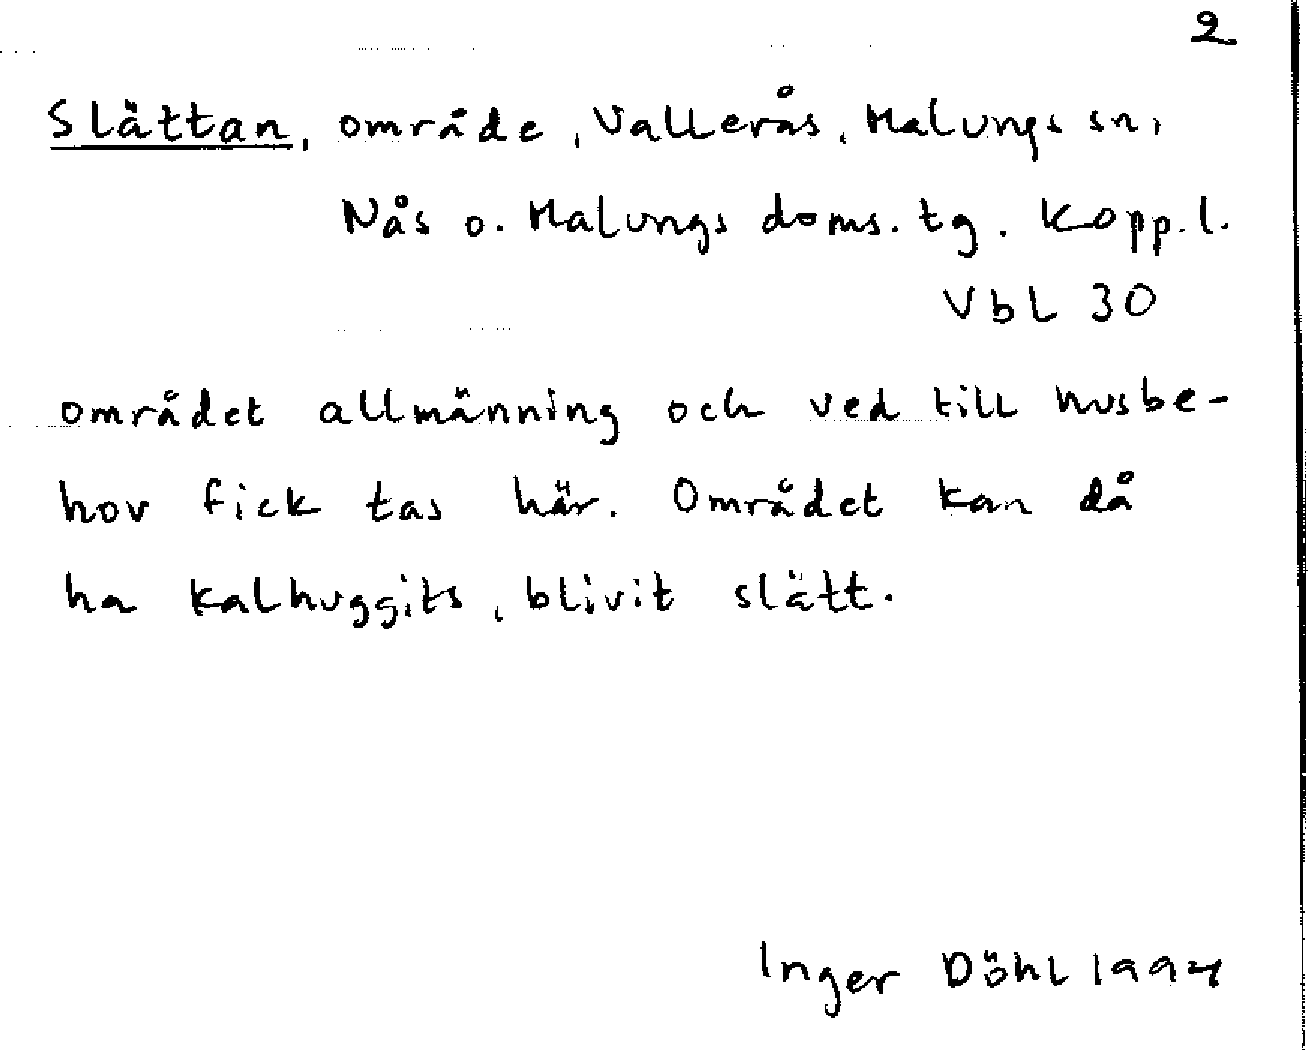 2
Slättan, område, Vallerås, Malungs sn,
Nås o. Malungs doms. tg. Kopp. l.
Vbl 30
området allmänning och ved till husbe-
hov fick tas här. Området kan då
ha kalhuggits, blivit slätt.
Inger Döhl 1994